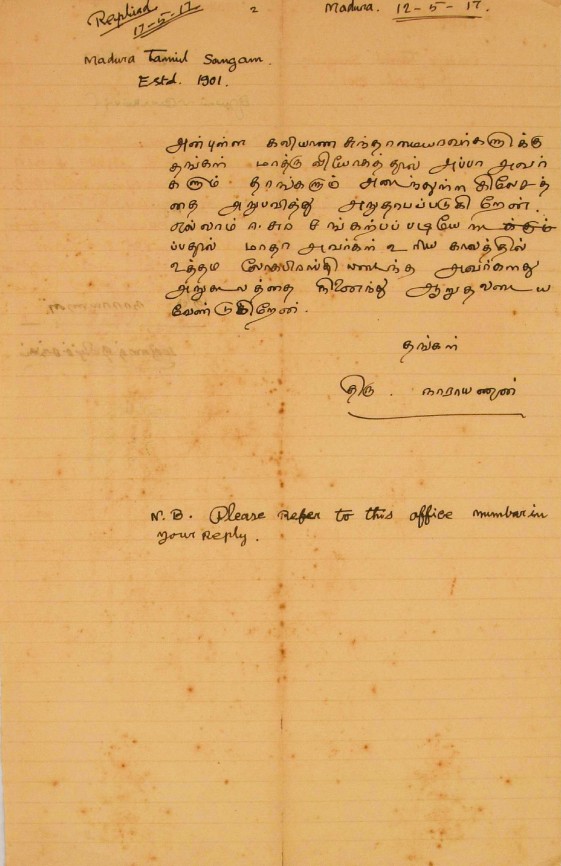 Replied
17-5-17
2
Madura. 12-5-17.
Madura Tamil Sangam.
Estd. 1901.
அன்புள்ள கலியாண சுந்தரமையரவர்களுக்கு
தங்கள் மாத்ரு வியோகத்தால் அப்பா அவர்
களும் தாங்களும் அடைந்துள்ள கிலேசத்
தை அநுபவித்து அநுதாபப்படுகிறேன்.
எல்லாம் சங்கற்பப்படியே
மாதா அவர்கள் உரிய காலத்தில்
உத்தம லோகபிராப்தி யடைந்த அவர்களது
அநுகூலத்தை நினைந்து ஆறுதலடைய
வேண்டுகிறேன்.
தங்கள்
திரு. நாராயணன்
N.B. Please Refer to this office numbar in
your Reply.